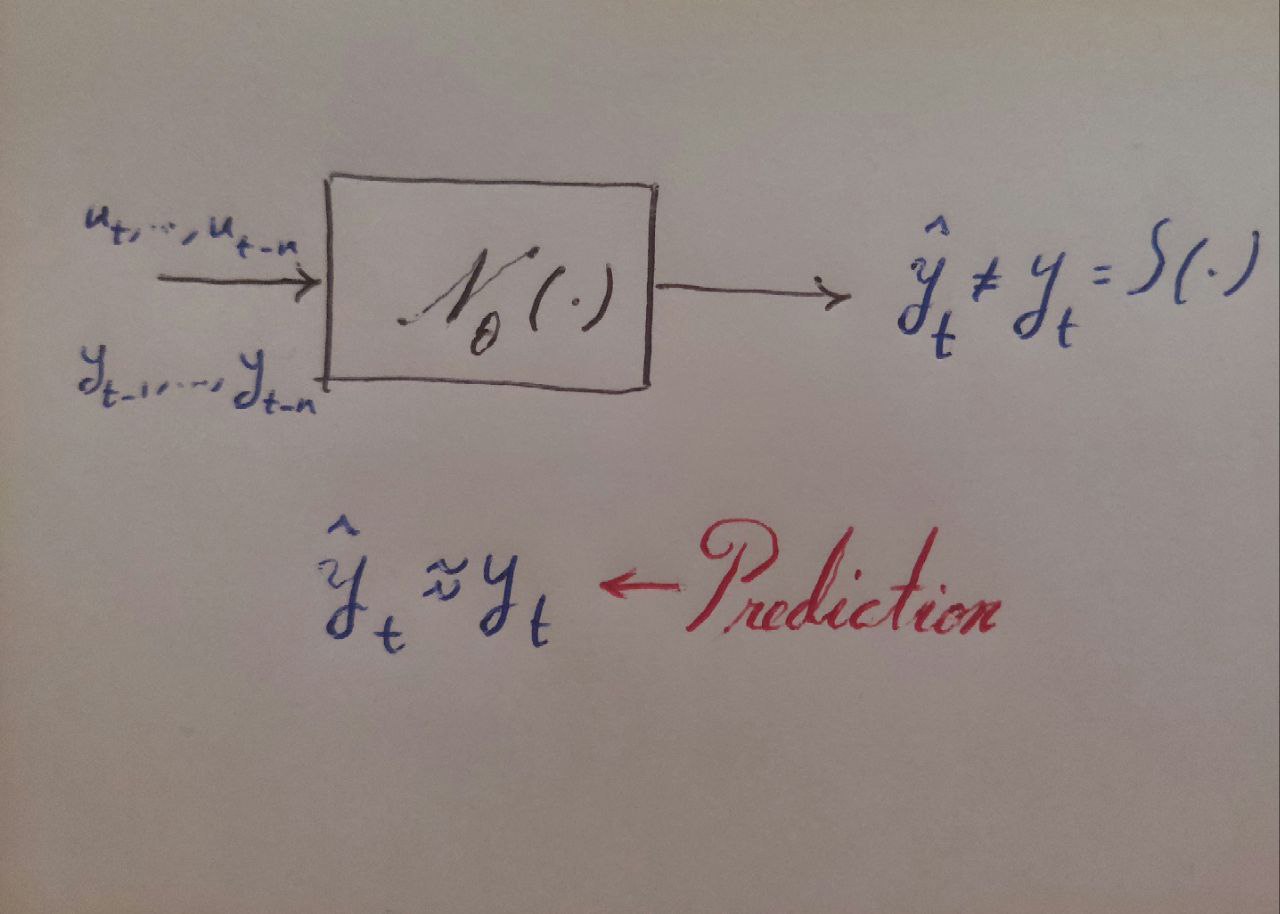 u_t, ..., u_{t-n}
y_{t-1}, ..., y_{t-n}
𝒩_θ(·)
ŷ_t ≠ y_t = S(·)
ŷ_t ≈ y_t ← Prediction